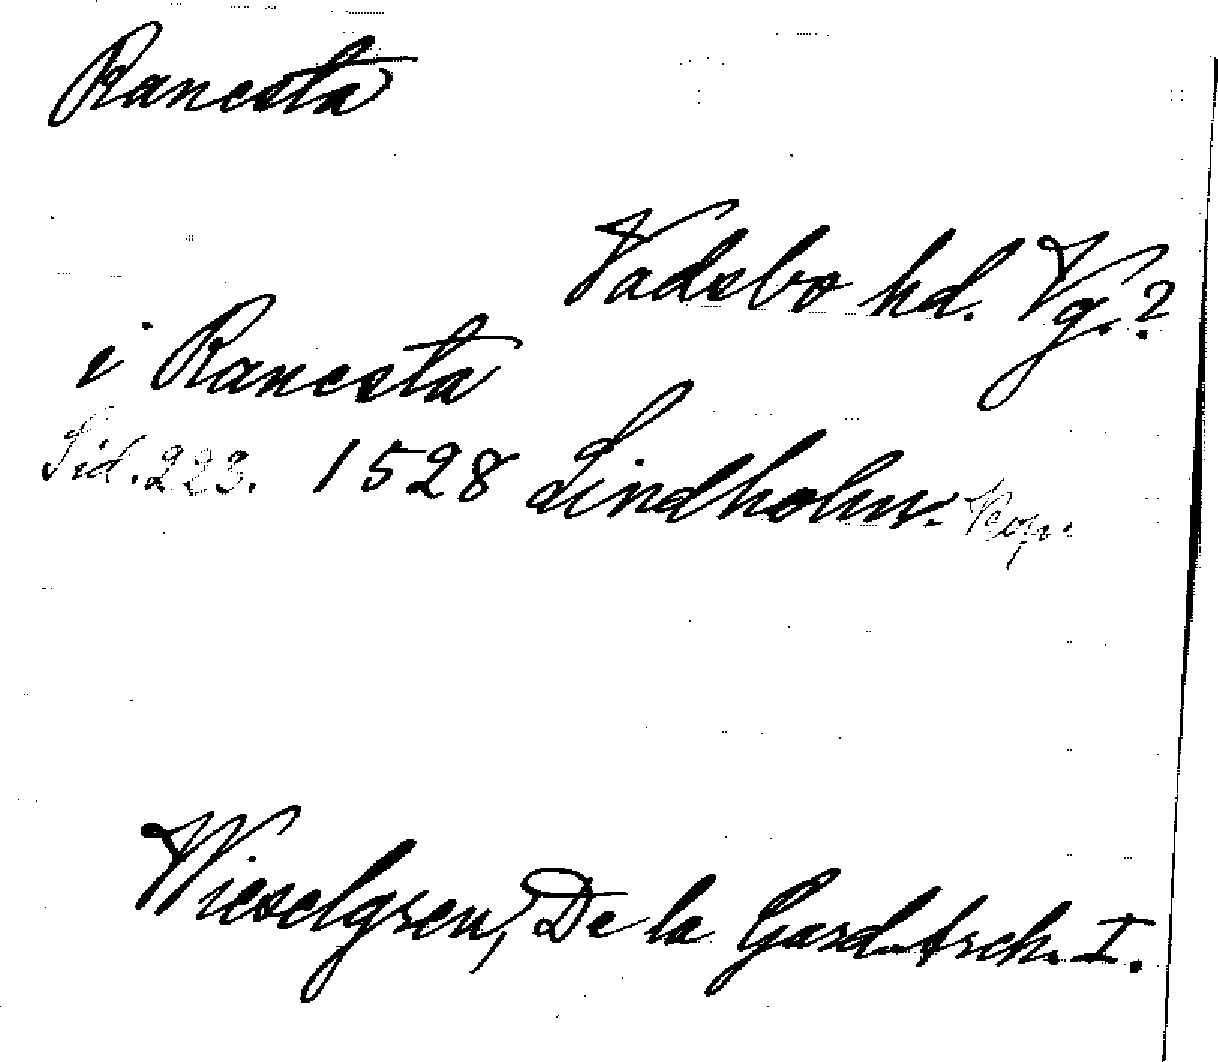 Rancsta
Vadsbo hd. Vg.?
i Rancsta
Sid. 223. 1528 Lindholm. Kop.
Wieselgren, De la Gard. Arch. I.